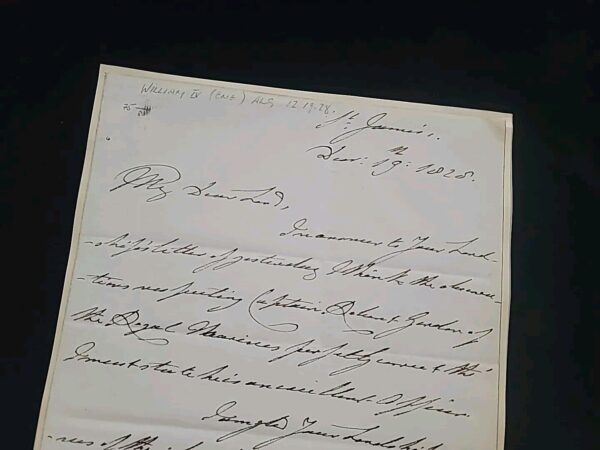 WILLIAM IV (ENG) ALS, 12.19.28.
St. James's.
Decr: 19th: 1828.
My Dear Lord,
In answer to Your Lord-
-ship's letter of yesterday I think the observa-
-tions respecting Captain Robert Gordon of
the Royal Marines perfectly correct & tho'
I must state he is an excellent Officer
I am glad Your Lordship
of the